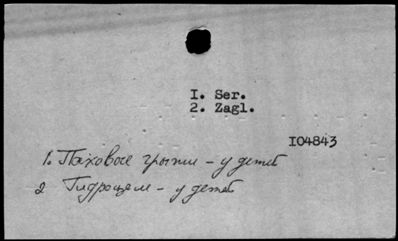 I. Ser.
2. Zagl.
I04843
1. Паховые грыжи – у детей
2 Гидроцеле – у детей